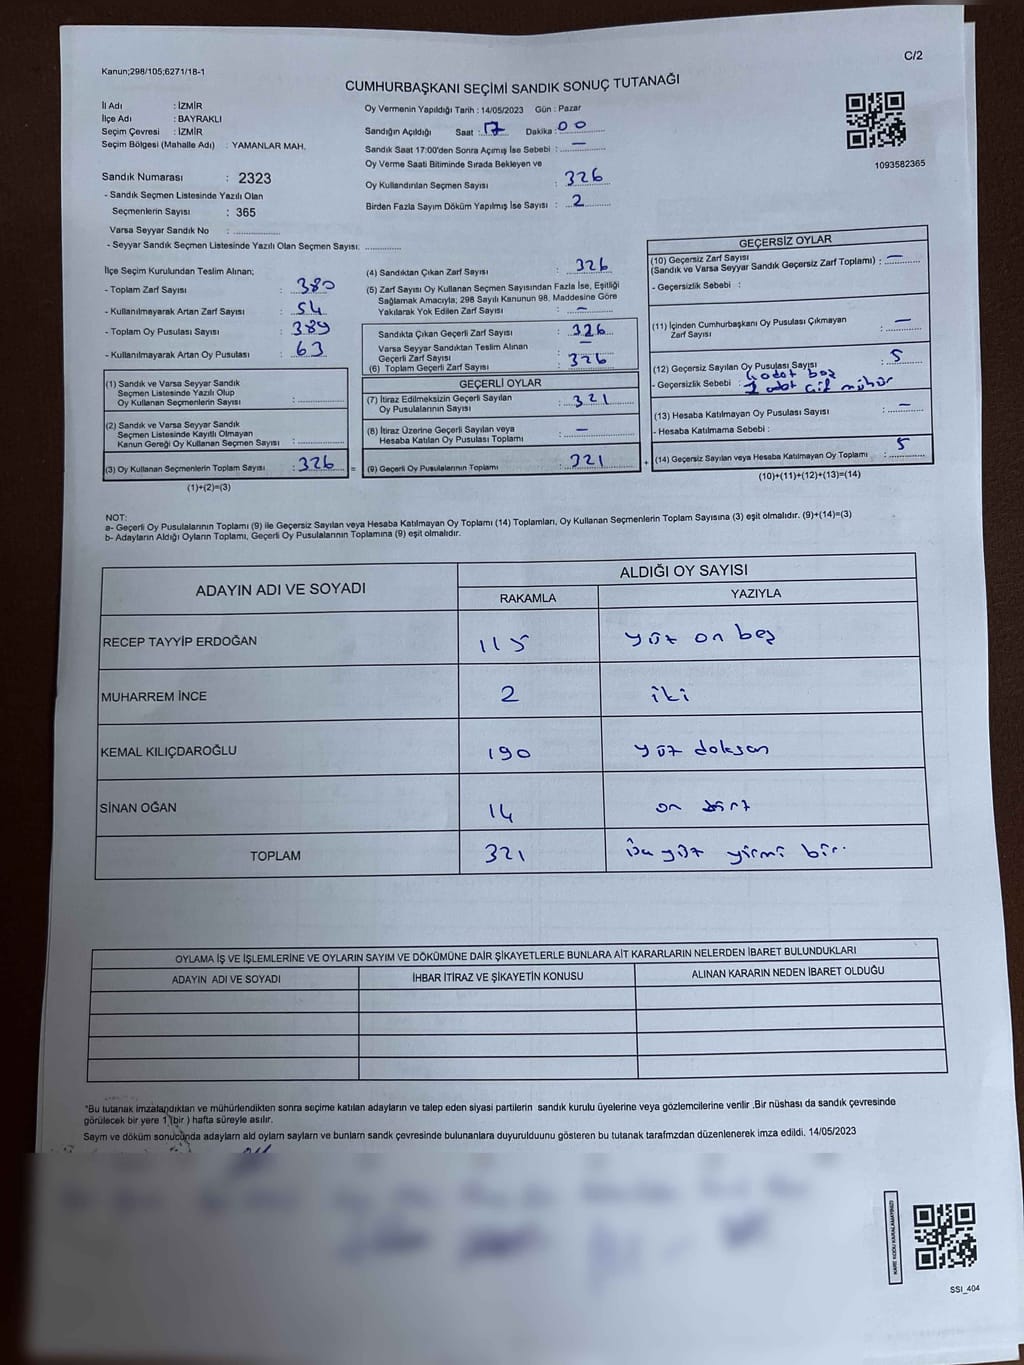 C/2
Kanun;298/105;6271/18-1
CUMHURBAŞKANI SEÇİMİ SANDIK SONUÇ TUTANAĞI
İl Adı : İZMİR
İlçe Adı : BAYRAKLI
Seçim Çevresi : İZMİR
Seçim Bölgesi (Mahalle Adı) : YAMANLAR MAH.
Sandık Numarası : 2323
- Sandık Seçmen Listesinde Yazılı Olan
Seçmenlerin Sayısı : 365
Varsa Seyyar Sandık No : ..............
- Seyyar Sandık Seçmen Listesinde Yazılı Olan Seçmen Sayısı: ............
Oy Vermenin Yapıldığı Tarih : 14/05/2023 Gün : Pazar
Sandığın Açıldığı Saat : 17 Dakika : 00
Sandık Saat 17:00'den Sonra Açımış İse Sebebi : —
Oy Verme Saati Bitiminde Sırada Bekleyen ve
Oy Kullandırılan Seçmen Sayısı : 326
Birden Fazla Sayım Döküm Yapılmış İse Sayısı : 2
1093582365
İlçe Seçim Kurulundan Teslim Alınan;
- Toplam Zarf Sayısı : 380
- Kullanılmayarak Artan Zarf Sayısı : 54
- Toplam Oy Pusulası Sayısı : 389
- Kullanılmayarak Artan Oy Pusulası : 63
(1) Sandık ve Varsa Seyyar Sandık
Seçmen Listesinde Yazılı Olup
Oy Kullanan Seçmenlerin Sayısı : ..............
(2) Sandık ve Varsa Seyyar Sandık
Seçmen Listesinde Kayıtlı Olmayan
Kanun Gereği Oy Kullanan Seçmen Sayısı : ..............
(3) Oy Kullanan Seçmenlerin Toplam Sayısı : 326 =
(1)+(2)=(3)
(4) Sandıktan Çıkan Zarf Sayısı : 326
(5) Zarf Sayısı Oy Kullanan Seçmen Sayısından Fazla İse, Eşitliği
Sağlamak Amacıyla; 298 Sayılı Kanunun 98. Maddesine Göre
Yakılarak Yok Edilen Zarf Sayısı : —
Sandıkta Çıkan Geçerli Zarf Sayısı : 326
Varsa Seyyar Sandıktan Teslim Alınan
Geçerli Zarf Sayısı : —
(6) Toplam Geçerli Zarf Sayısı : 326
GEÇERLİ OYLAR
(7) İtiraz Edilmeksizin Geçerli Sayılan
Oy Pusulalarının Sayısı : 321
(8) İtiraz Üzerine Geçerli Sayılan veya
Hesaba Katılan Oy Pusulası Toplamı : —
(9) Geçerli Oy Pusulalarının Toplamı : 321 +
GEÇERSİZ OYLAR
(10) Geçersiz Zarf Sayısı
(Sandık ve Varsa Seyyar Sandık Geçersiz Zarf Toplamı) : —
- Geçersizlik Sebebi :
(11) İçinden Cumhurbaşkanı Oy Pusulası Çıkmayan
Zarf Sayısı : —
(12) Geçersiz Sayılan Oy Pusulası Sayısı : 5
4 adet boş
- Geçersizlik Sebebi : 1 adet çift mühür
(13) Hesaba Katılmayan Oy Pusulası Sayısı : —
- Hesaba Katılmama Sebebi :
(14) Geçersiz Sayılan veya Hesaba Katılmayan Oy Toplamı : 5
(10)+(11)+(12)+(13)=(14)
NOT:
a- Geçerli Oy Pusulalarının Toplamı (9) ile Geçersiz Sayılan veya Hesaba Katılmayan Oy Toplamı (14) Toplamları, Oy Kullanan Seçmenlerin Toplam Sayısına (3) eşit olmalıdır. (9)+(14)=(3)
b- Adayların Aldığı Oyların Toplamı, Geçerli Oy Pusulalarının Toplamına (9) eşit olmalıdır.
ADAYIN ADI VE SOYADI ALDIĞI OY SAYISI
RAKAMLA YAZIYLA
RECEP TAYYİP ERDOĞAN 115 yüz on beş
MUHARREM İNCE 2 iki
KEMAL KILIÇDAROĞLU 190 yüz doksan
SİNAN OĞAN 14 on dört
TOPLAM 321 yüz yirmi bir.
OYLAMA İŞ VE İŞLEMLERİNE VE OYLARIN SAYIM VE DÖKÜMÜNE DAİR ŞİKAYETLERLE BUNLARA AİT KARARLARIN NELERDEN İBARET BULUNDUKLARI
ADAYIN ADI VE SOYADI İHBAR İTİRAZ VE ŞİKAYETİN KONUSU ALINAN KARARIN NEDEN İBARET OLDUĞU
*Bu tutanak imzalandıktan ve mühürlendikten sonra seçime katılan adayların ve talep eden siyasi partilerin sandık kurulu üyelerine veya gözlemcilerine verilir .Bir nüshası da sandık çevresinde
görülecek bir yere 1 (bir ) hafta süreyle asılır.
Saym ve döküm sonucunda adaylarn ald oylarn saylarn ve bunlarn sandk çevresinde bulunanlara duyurulduunu gösteren bu tutanak tarafmzdan düzenlenerek imza edildi. 14/05/2023
KARE KODU KARALAMAYINIZ!
SSI_404